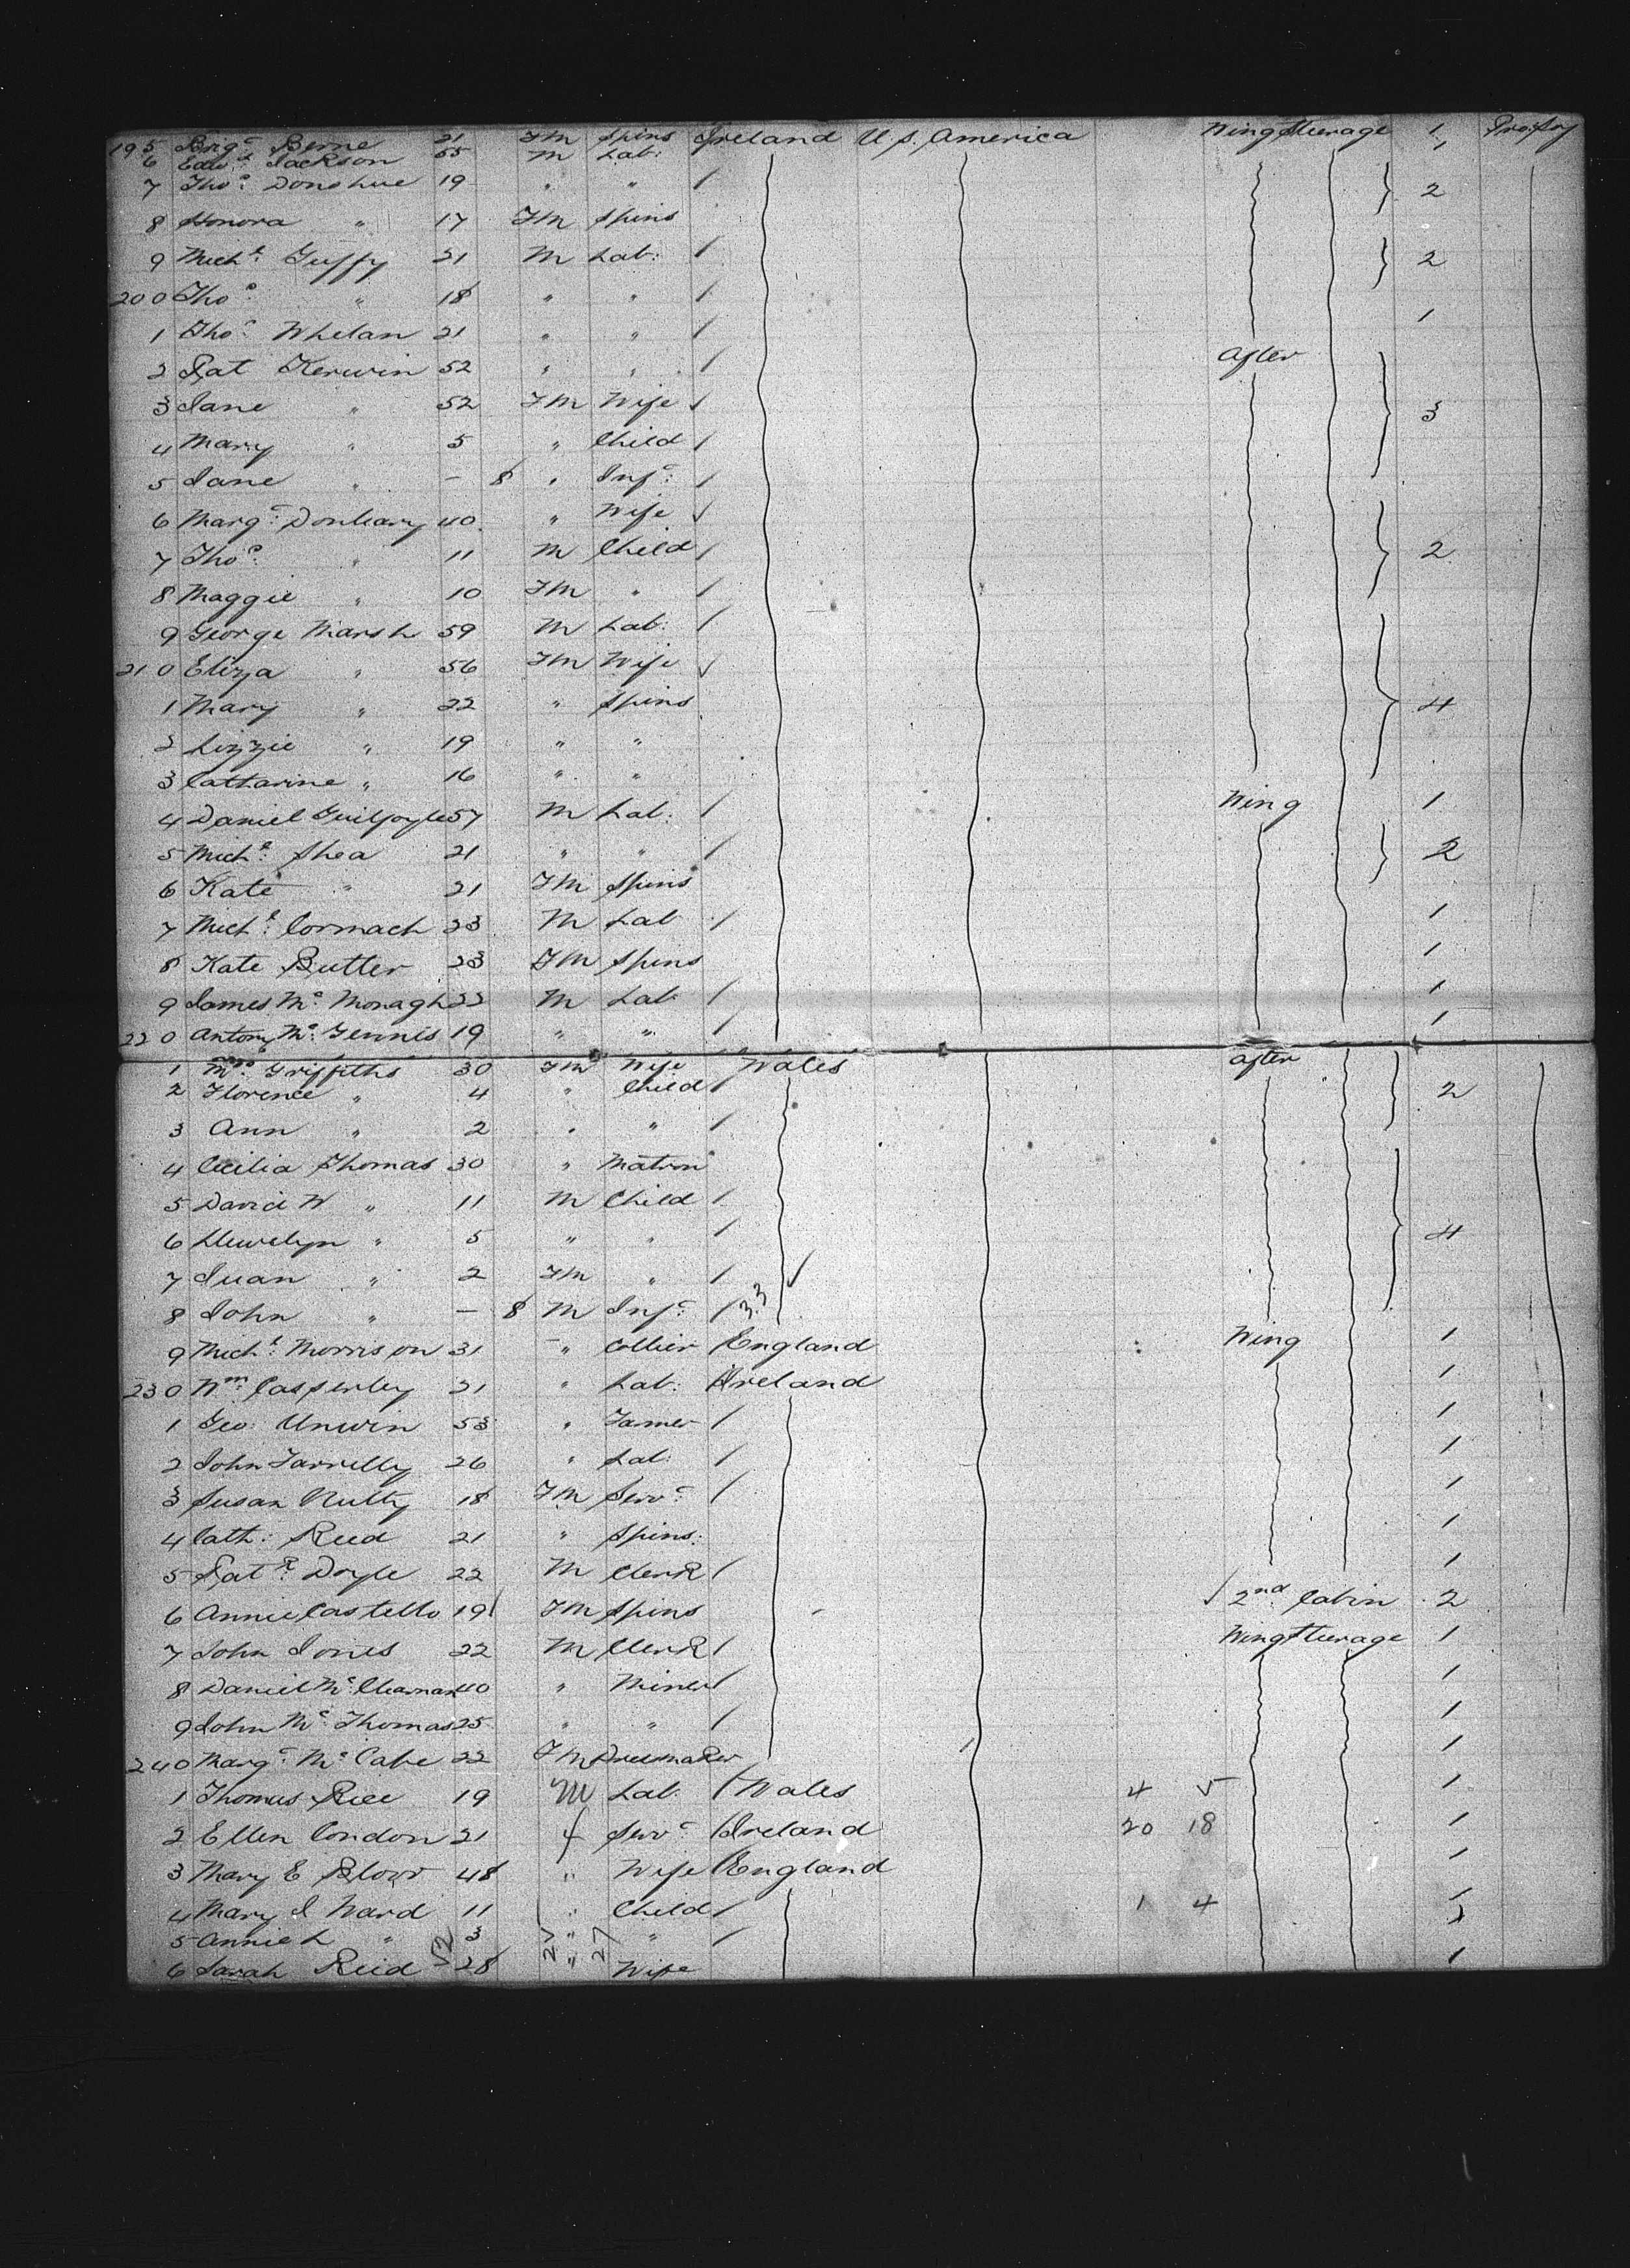 195 Brigt Berne 21 FM Spins Ireland U.S. America Wing Steerage 1
6 Edwd Jackson 55 M Lab: 1
7 Thos Donohue 19 " " / 2
8 Honora " 17 FM Spins
9 Michl Guffy 21 M Lab: / 2
200 Thos " 18 " " /
1 Thos Whelan 21 " " / 1
2 Pat Kerwin 52 " " / After
3 Jane " 52 FM Wife / 3
4 Mary " 5 " Child /
5 Jane " – 8 " Inft /
6 Margt Donleavy 40 " Wife /
7 Thos " 11 M Child / 2
8 Maggie " 10 FM " /
9 George Marsh 59 M Lab: /
210 Eliza " 56 FM Wife /
1 Mary " 22 " Spins 4
2 Lizzie " 19 " "
3 Catharine " 16 " "
4 Daniel Guilfoyle 57 M Lab: / Wing 1
5 Michl Shea 21 " " / 2
6 Kate " 21 FM Spins
7 Michl Cormach 23 M Lab / 1
8 Kate Butler 23 FM Spins 1
9 James Mc Monagh 22 M Lab / 1
220 Antony Mc Fennis 19 " " / 1
1 Mrs Griffiths 30 FM Wife Wales After
2 Florence " 4 " Child / 2
3 Ann " 2 " " /
4 Cecilia Thomas 30 " Matron
5 David W " 11 M Child /
6 Llewelyn " 5 " " / 4
7 " 2 FM " /
8 John " – 8 M Inft / 33
9 Michl Morrison 31 " Collier England Wing 1
230 Wm Casserley 21 " Lab: Ireland 1
1 Geo: Unwin 53 " Farmer / 1
2 John Farrelly 26 " Lab: / 1
3 Susan Nulty 18 FM Servt / 1
4 Cath: Reed 21 " Spins: 1
5 Patk Doyle 22 M Clerk / 1
6 Annie Castello 19 FM Spins 2nd Cabin 2
7 John Jones 22 M Clerk / Wing Steerage 1
8 Daniel Mc 40 " Miner / 1
9 John Mc Thomas 25 " " / 1
240 Margt Mc Cabe 22 FM Dressmaker 1
1 Thomas Rice 19 M Lab. / Wales 4 5 1
2 Ellen Condon 21 f Servt / Ireland 20 18 1
3 Mary E Bloor 48 " Wife England 1
4 Mary J Ward 11 " Child / 1 4 1
5 Annie L " 3 " " / 1
6 Sarah Reid 28 " Wife 1